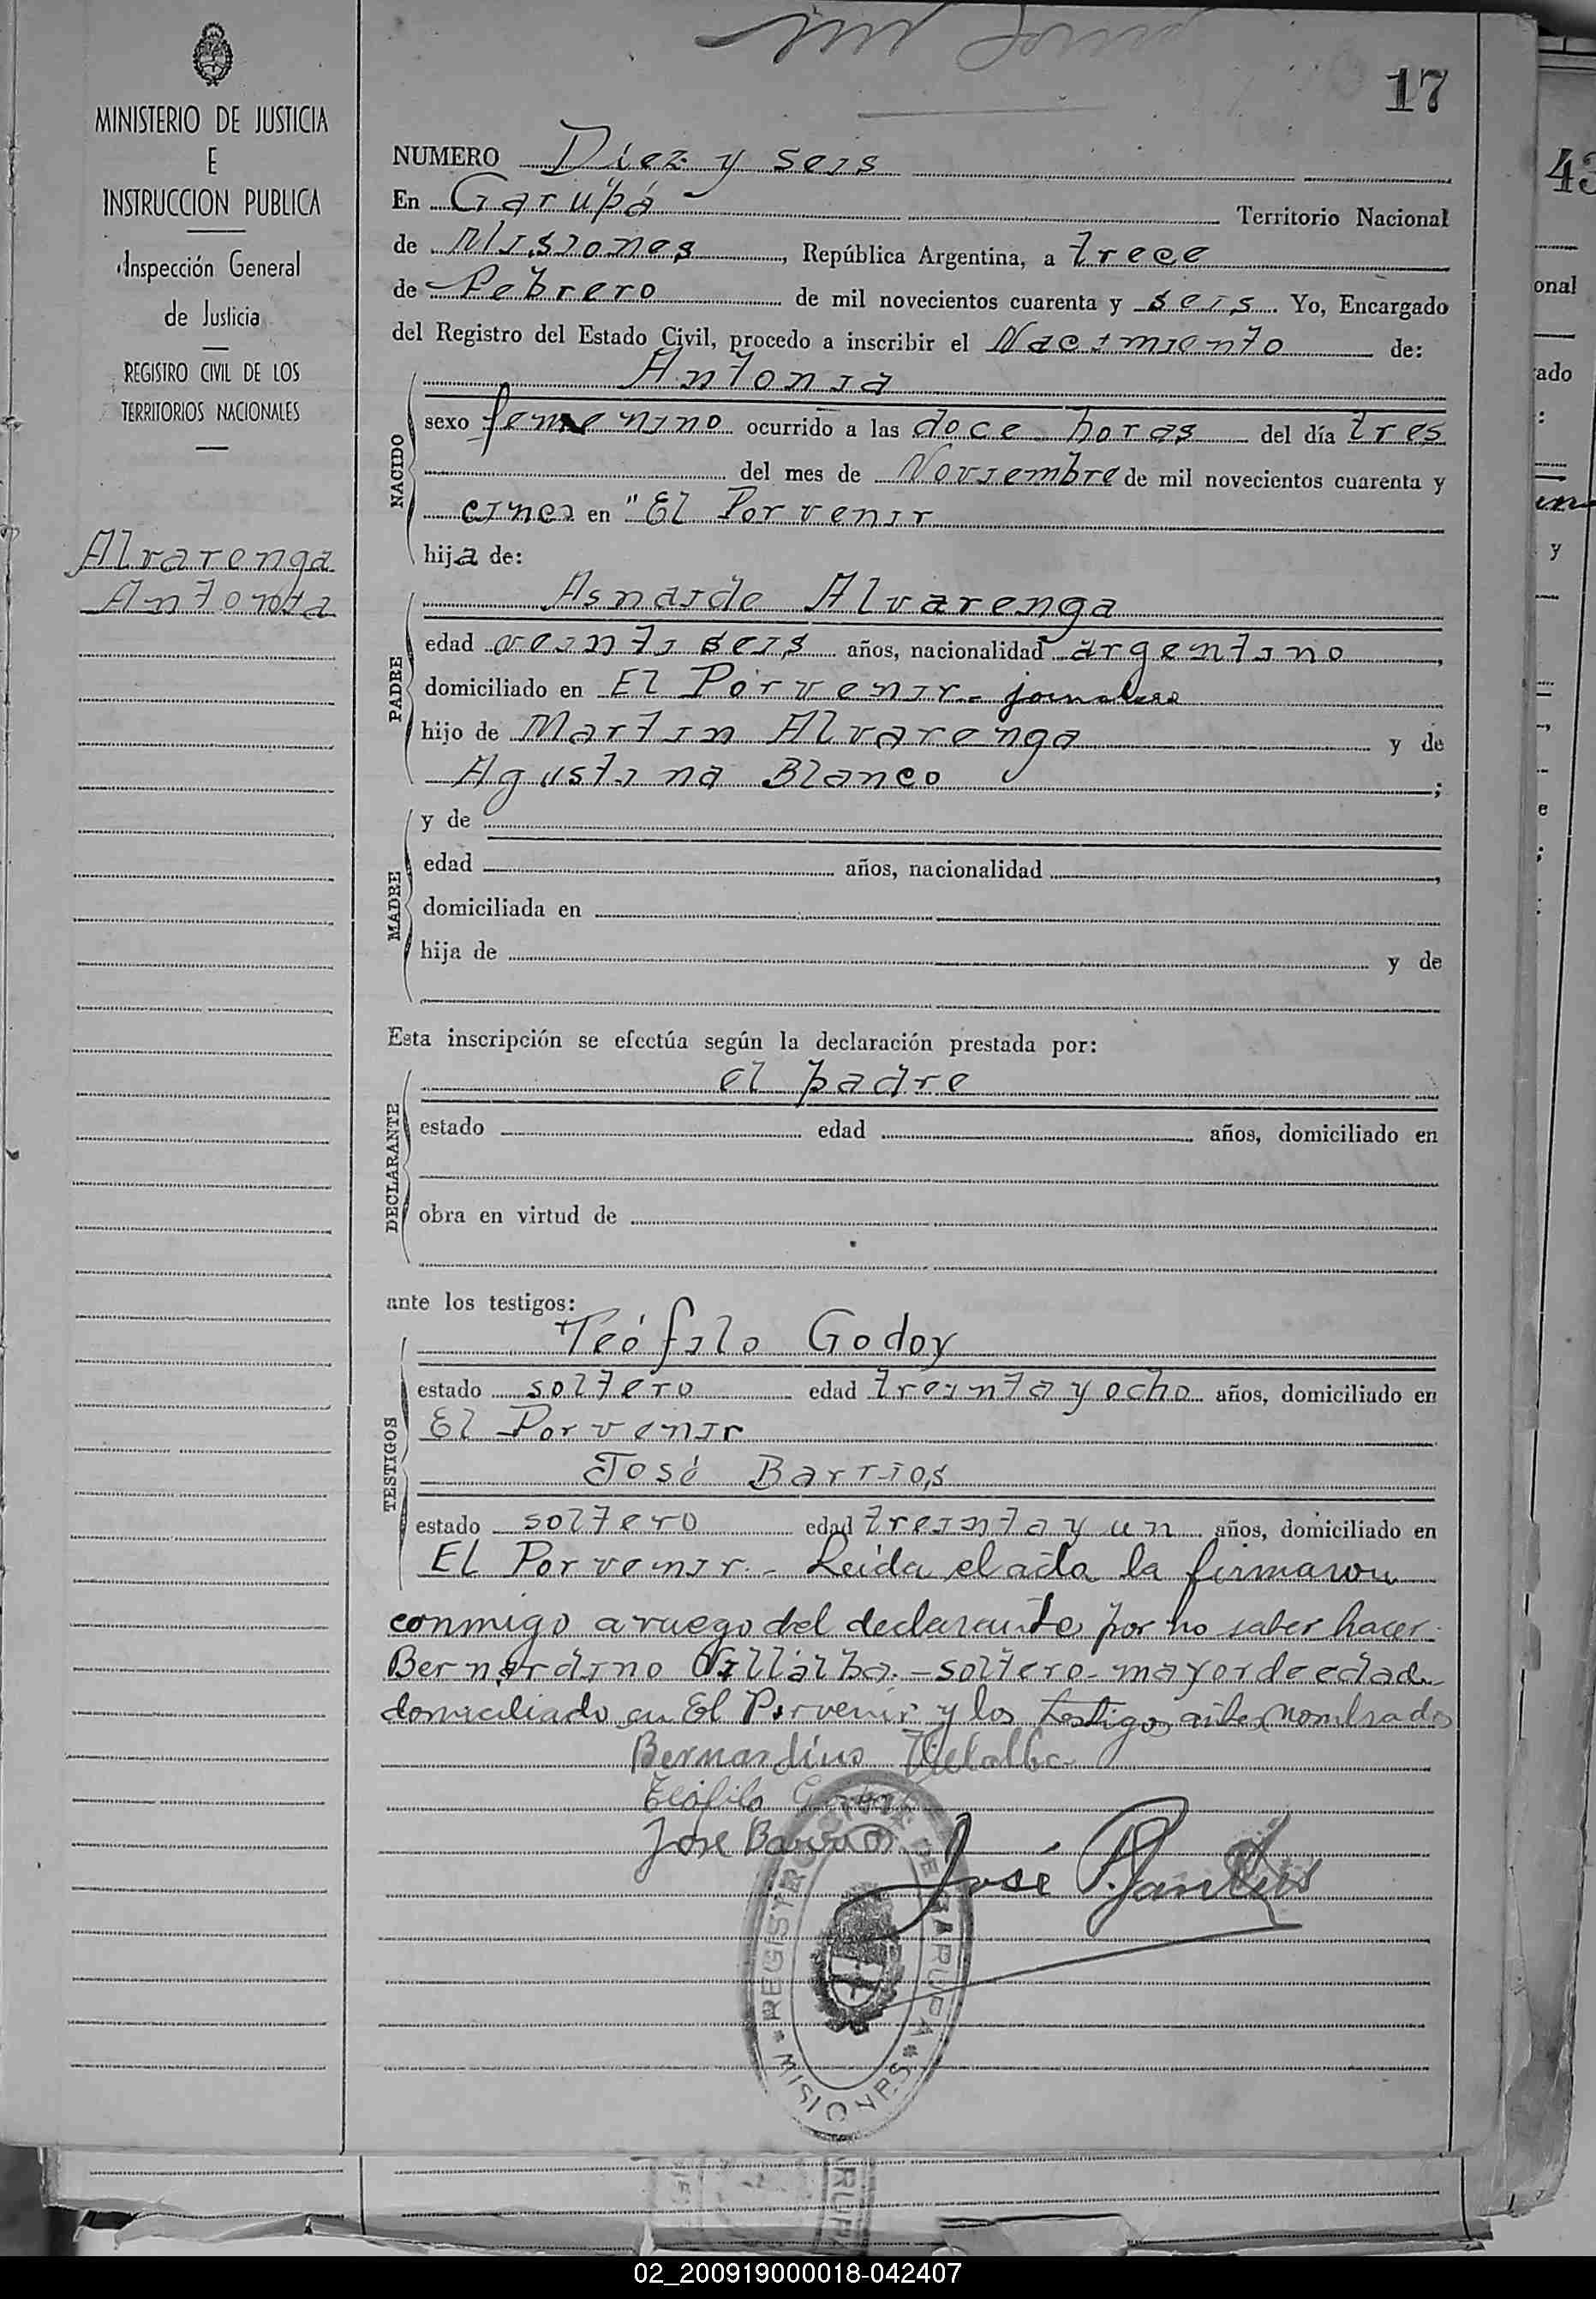 17
MINISTERIO DE JUSTICIA
E
INSTRUCCION PUBLICA
Inspección General
de Justicia
REGISTRO CIVIL DE LOS
TERRITORIOS NACIONALES
Alvarenga
Antonia
NUMERO Diez y seis
En Garupá Territorio Nacional
de Misiones, República Argentina, a trece
de Febrero de mil novecientos cuarenta y seis. Yo, Encargado
del Registro del Estado Civil, procedo a inscribir el Nacimiento de:
NACIDO
Antonia
sexo femenino ocurrido a las doce horas del día tres
del mes de Noviembre de mil novecientos cuarenta y
cinco en "El Porvenir
hija de:
PADRE
Asnaide Alvarenga
edad veinti seis años, nacionalidad argentino,
domiciliado en El Porvenir.- jornalero
hijo de Martin Alvarenga y de
Agustina Blanco;
MADRE
y de
edad años, nacionalidad,
domiciliada en
hija de y de
Esta inscripción se efectúa según la declaración prestada por:
DECLARANTE
el padre
estado edad años, domiciliado en
obra en virtud de
ante los testigos:
TESTIGOS
Teófilo Godoy
estado soltero edad treinta y ocho años, domiciliado en
El Porvenir
José Barrios
estado soltero edad treinta y un años, domiciliado en
El Porvenir.- Leida el acta la firmaron
conmigo a ruego del declarante por no saber hacer
Bernardino Villalba.- soltero- mayor de edad
domiciliado en El Porvenir y los testigos antes nombrados
Bernardino Villalba
Teófilo Godoy
Jose Barrios
José
REGISTRO CIVIL DE GARUPA
* MISIONES *
43
onal
ado
:
y
e
;
RUPA
02_200919000018-042407